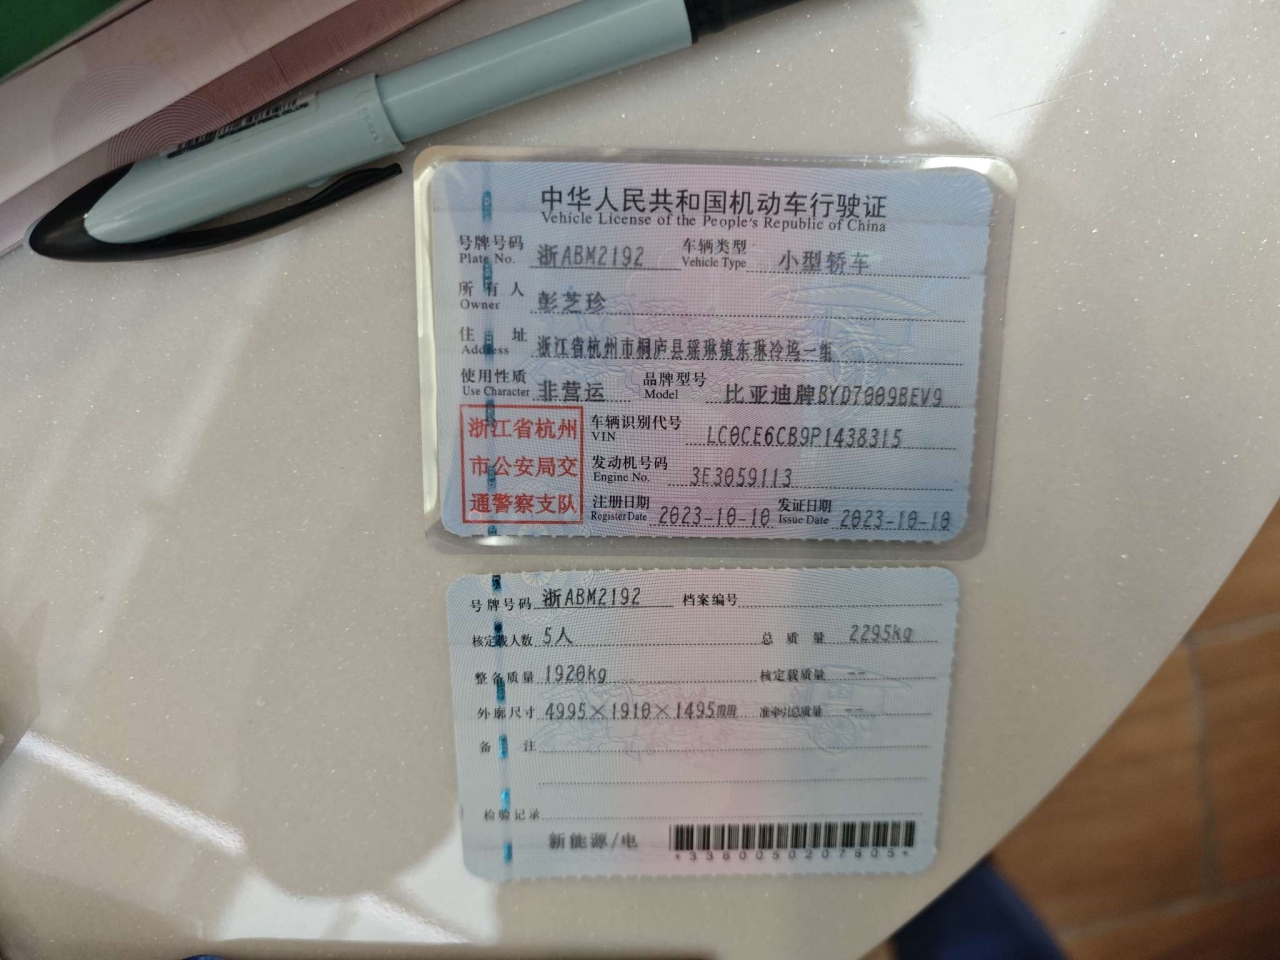 中华人民共和国机动车行驶证
Vehicle License of the People's Republic of China
号牌号码 Plate No. 浙ABM2192 车辆类型 Vehicle Type 小型轿车
所有人 Owner 彭芝珍
住址 Address 浙江省杭州市桐庐县瑶琳镇东琳冷坞一组
使用性质 Use Character 非营运 品牌型号 Model 比亚迪牌BYD7009BEV9
浙江省杭州市公安局交通警察支队
车辆识别代号 VIN LC0CE6CB9P1438315
发动机号码 Engine No. 3E3059113
注册日期 Register Date 2023-10-10 发证日期 Issue Date 2023-10-10
号牌号码 浙ABM2192 档案编号
核定载人数 5人 总质量 2295kg
整备质量 1920kg 核定载质量 --
外廓尺寸 4995×1910×1495mm 准牵引总质量 --
备注
检验记录
新能源/电
*3360050207805*